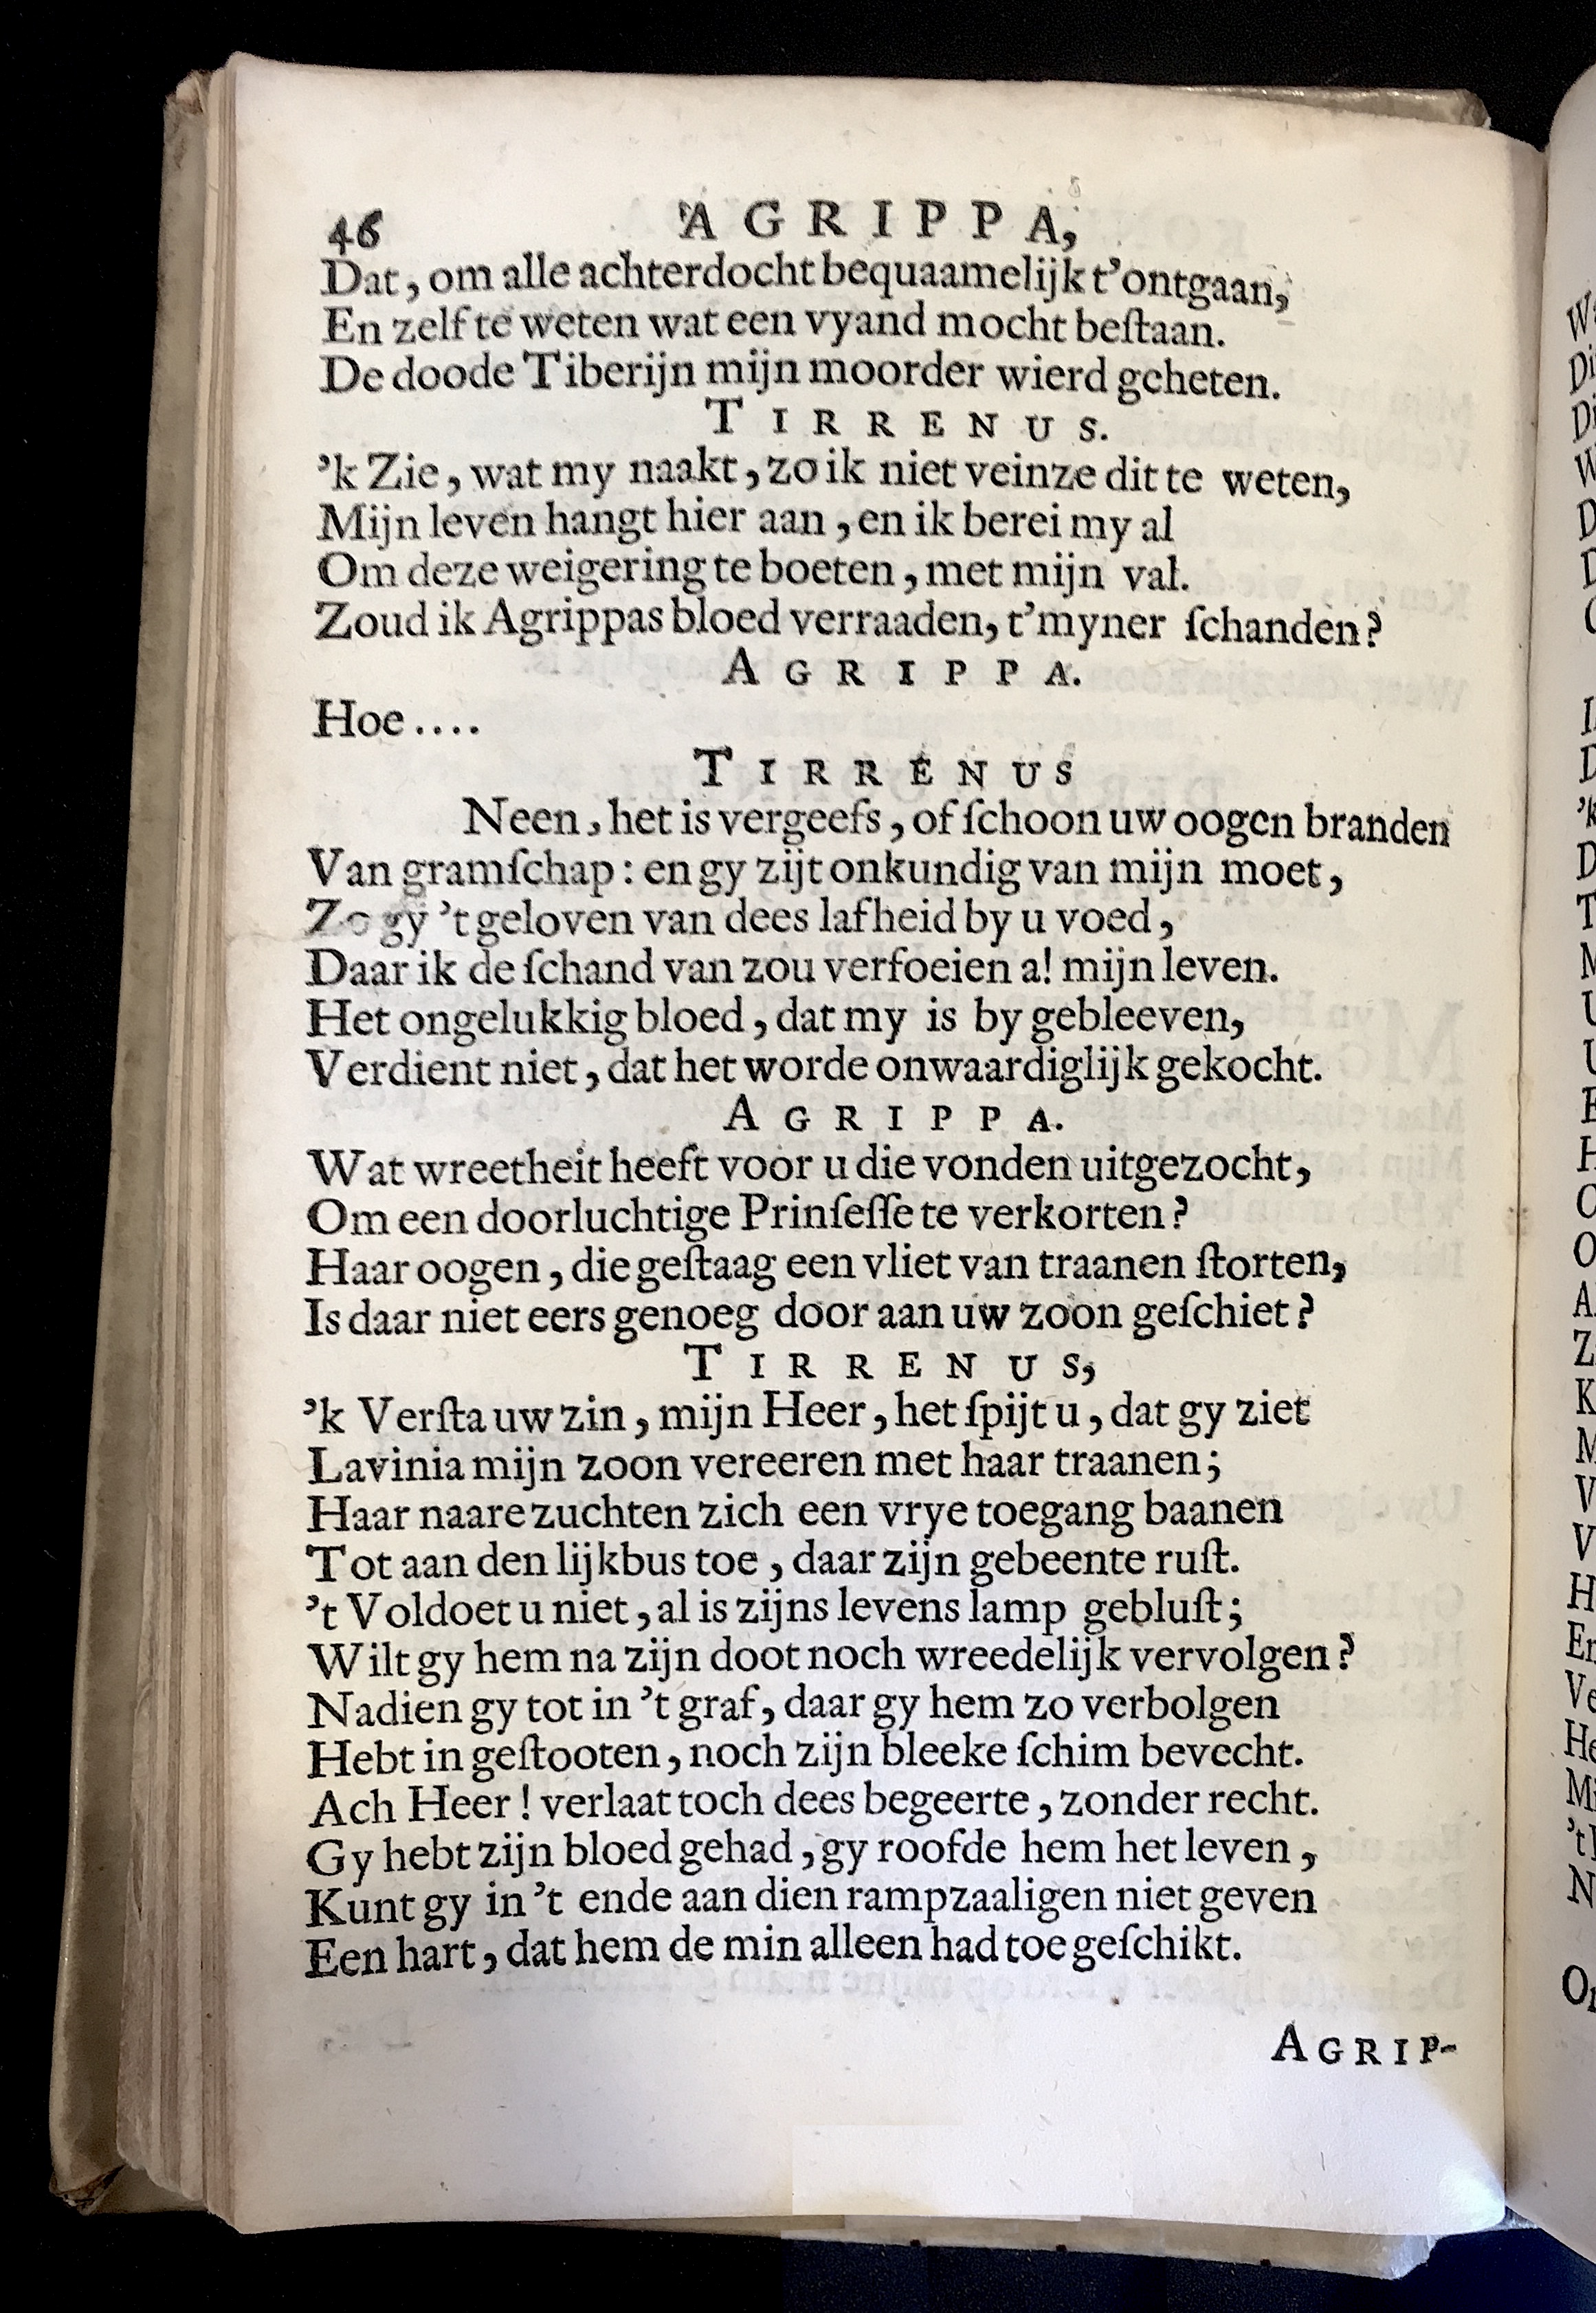 46 AGRIPPA,
Dat, om alle achterdocht bequaamelijk t'ontgaan,
En zelf te weten wat een vyand mocht beſtaan.
De doode Tiberijn mijn moorder wierd geheten.
TIRRENUS.
'k Zie, wat my naakt, zo ik niet veinze dit te weten,
Mijn leven hangt hier aan, en ik berei my al
Om deze weigering te boeten, met mijn val.
Zoud ik Agrippas bloed verraaden, t'myner ſchanden?
AGRIPPA.
Hoe....
TIRRENUS
Neen, het is vergeefs, of ſchoon uw oogen branden
Van gramſchap: en gy zijt onkundig van mijn moet,
Zo gy 't geloven van dees lafheid by u voed,
Daar ik de ſchand van zou verfoeien a! mijn leven.
Het ongelukkig bloed, dat my is by gebleeven,
Verdient niet, dat het worde onwaardiglijk gekocht.
AGRIPPA.
Wat wreetheit heeft voor u die vonden uitgezocht,
Om een doorluchtige Prinſeſſe te verkorten?
Haar oogen, die geſtaag een vliet van traanen ſtorten,
Is daar niet eers genoeg door aan uw zoon geſchiet?
TIRRENUS,
'k Verſta uw zin, mijn Heer, het ſpijt u, dat gy ziet
Lavinia mijn zoon vereeren met haar traanen;
Haar naare zuchten zich een vrye toegang baanen
Tot aan den lijkbus toe, daar zijn gebeente ruſt.
't Voldoet u niet, al is zijns levens lamp gebluſt;
Wilt gy hem na zijn doot noch wreedelijk vervolgen?
Nadien gy tot in 't graf, daar gy hem zo verbolgen
Hebt in geſtooten, noch zijn bleeke ſchim bevecht.
Ach Heer! verlaat toch dees begeerte, zonder recht.
Gy hebt zijn bloed gehad, gy roofde hem het leven,
Kunt gy in 't ende aan dien rampzaaligen niet geven
Een hart, dat hem de min alleen had toe geſchikt.
AGRIP-